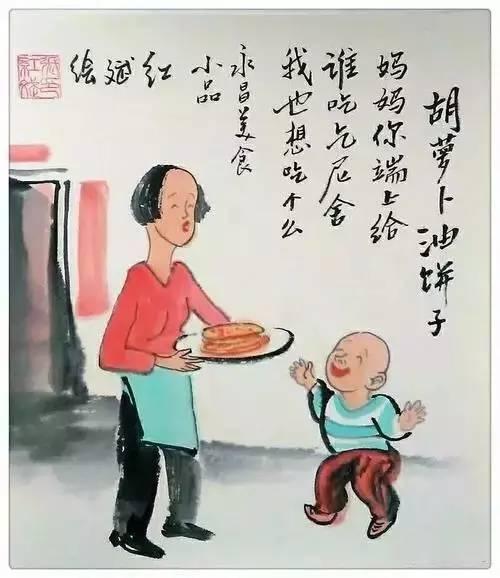 胡萝卜油饼子
妈妈你端上给
谁吃乞尼舍
我也想吃个么
永昌美食
小品
红斌绘